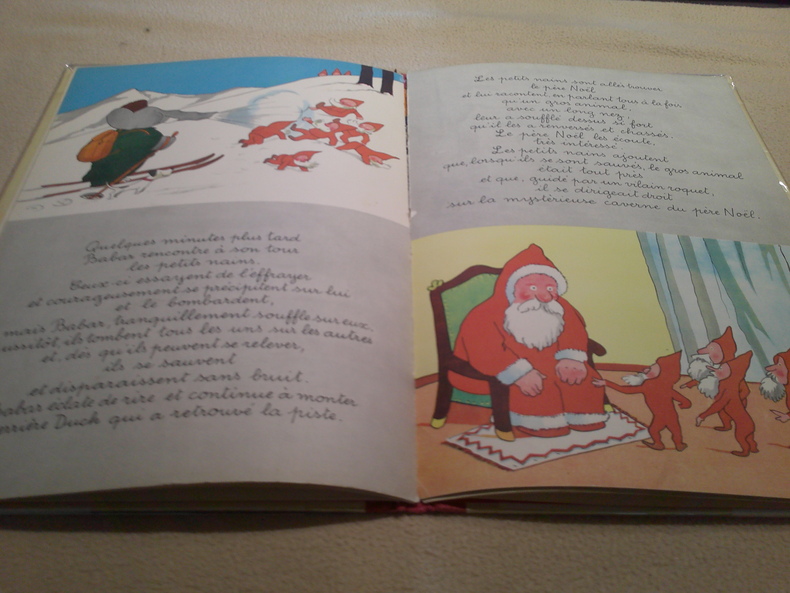 Quelques minutes plus tard
Babar rencontre à son tour
les petits nains.
Ceux-ci essayent de l'effrayer
et courageusement se précipitent sur lui
et le bombardent,
mais Babar, tranquillement souffle sur eux.
ussitôt ils tombent tous les uns sur les autres
et, dès qu'ils peuvent se relever,
ils se sauvent
et disparaissent sans bruit.
Babar éclate de rire et continue à monter
errière Duck qui a retrouvé la piste.
Les petits nains sont allés trouver
le père Noël
et lui racontent en parlant tous à la fois
qu'un gros animal,
avec un long nez,
leur a soufflé dessus si fort
qu'il les a renversés et chassés.
Le père Noël les écoute,
très intéressé.
Les petits nains ajoutent
que, lorsqu'ils se sont sauvés, le gros animal
était tout près
et que, guidé par un vilain roquet,
il se dirigeait droit
sur la mystérieuse caverne du père Noël.